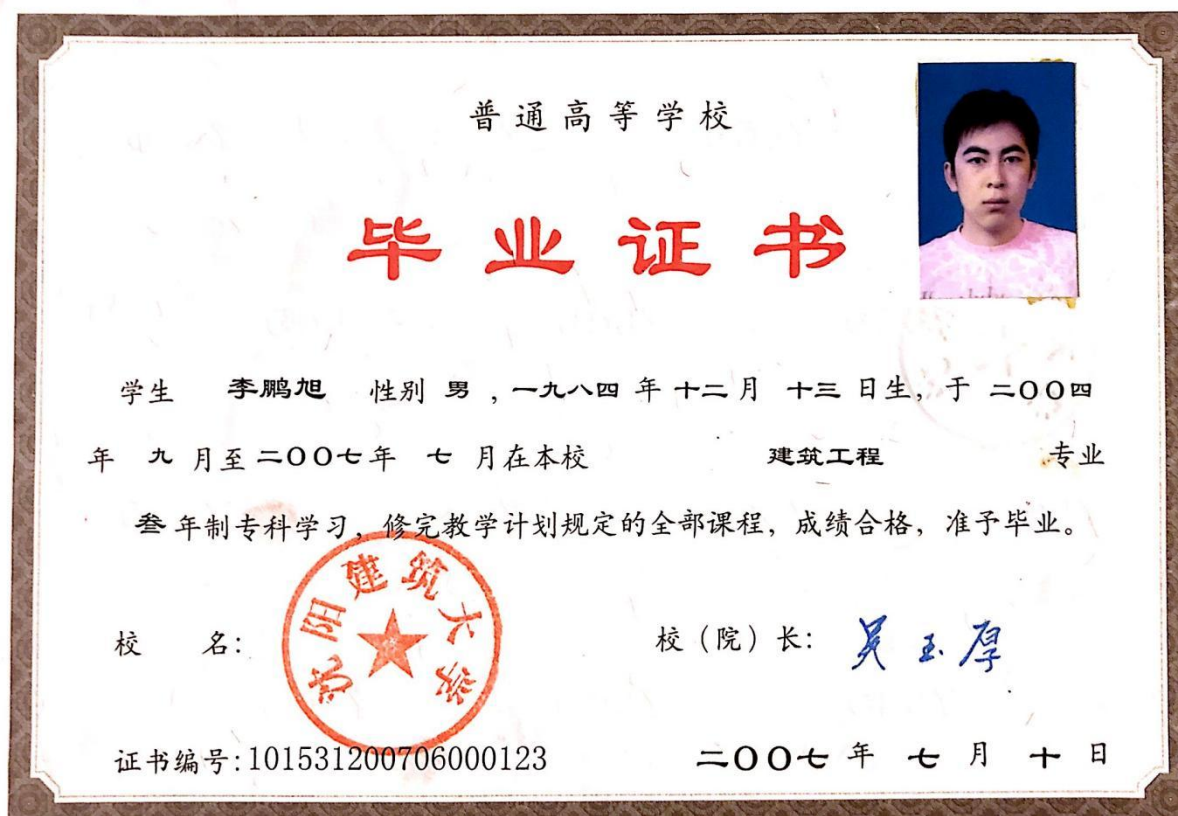 普通高等学校
毕业证书
学生 李鹏旭 性别 男，一九八四 年 十二 月 十三 日生，于 二〇〇四
年 九 月至 二〇〇七 年 七 月在本校 建筑工程 专业
叁 年制专科学习，修完教学计划规定的全部课程，成绩合格，准予毕业。
校 名：
沈阳建筑大学
校（院）长：吴玉厚
证书编号：101531200706000123
二〇〇七 年 七 月 十 日